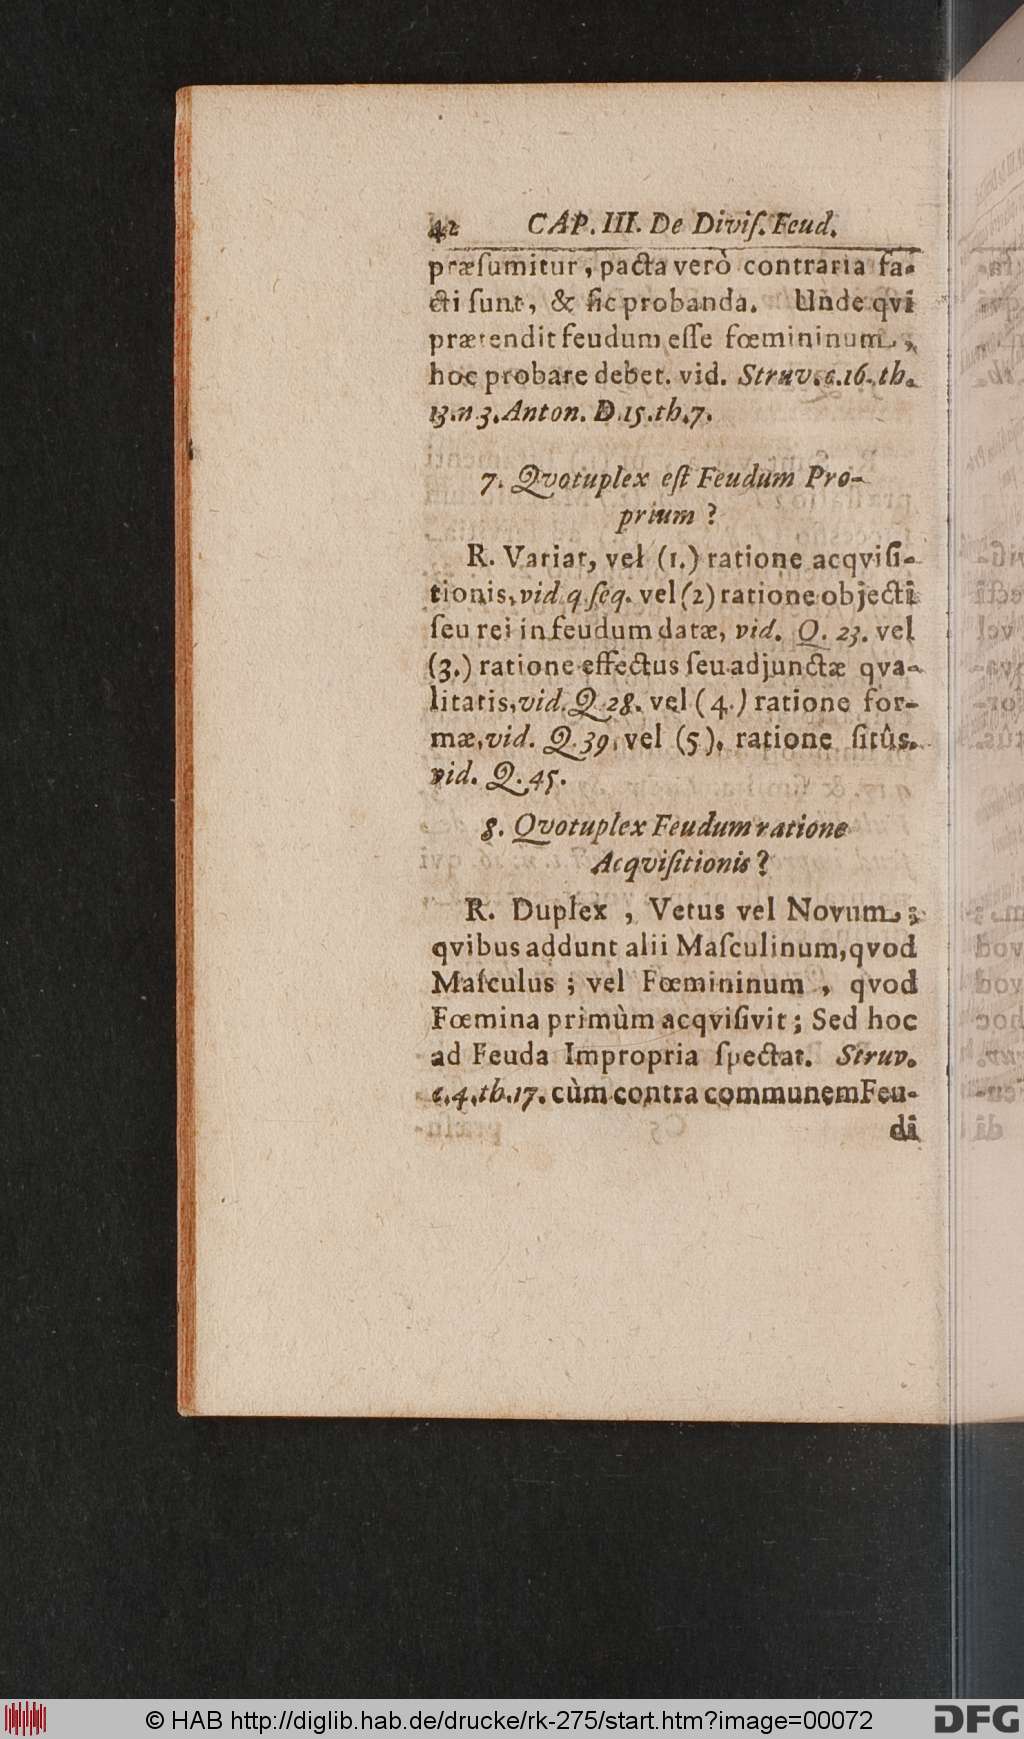 42 CAP. III. De Diviſ. Feud.
præſumitur, pacta verò contraria fa-
cti ſunt, & ſic probanda. Unde qvi
prætendit feudum eſſe fœmininum,
hoc probare debet. vid. Struv. c. 16. th.
13. n 3. Anton. D. 15. th. 7.
7. Qvotuplex eſt Feudum Pro-
prium?
R. Variat, vel (1.) ratione acqviſi-
tionis, vid. q. ſeq. vel (2) ratione objecti
ſeu rei infeudum datæ, vid. Q. 23. vel
(3.) ratione effectus ſeu adjunctæ qva-
litatis, vid. Q. 28. vel (4.) ratione for-
mæ, vid. Q. 39. vel (5). ratione ſitûs.
vid. Q. 45.
8. Qvotuplex Feudum ratione
Acqviſitionis?
R. Duplex, Vetus vel Novum;
qvibus addunt alii Maſculinum, qvod
Maſculus; vel Fœmininum, qvod
Fœmina primùm acqviſivit; Sed hoc
ad Feuda Impropria ſpectat. Struv.
c. 4. th. 17. cùm contra communem Feu-
di
© HAB http://diglib.hab.de/drucke/rk-275/start.htm?image=00072
DFG